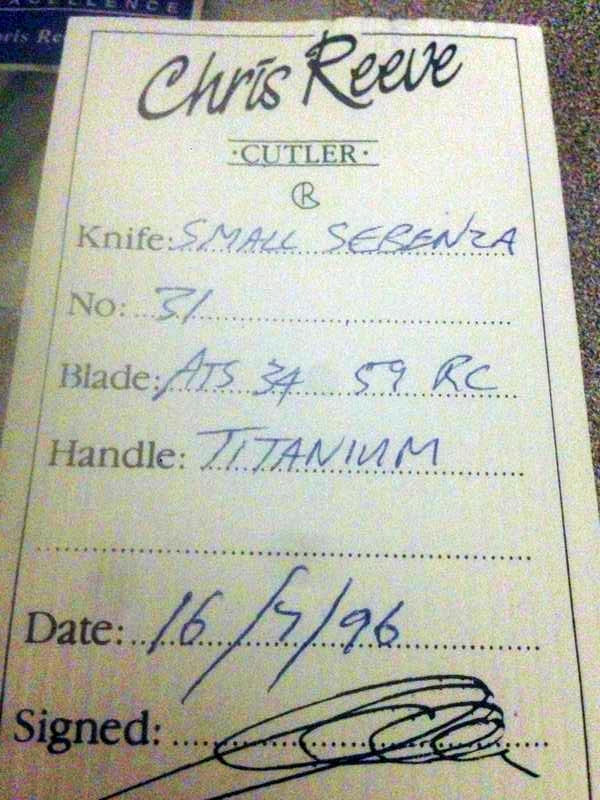 XCELLENCE
Chris Reeve
·CUTLER·
R
Knife: SMALL SEBENZA
No: 31
Blade: ATS 34 59 RC
Handle: TITANIUM
Date: 16/7/96
Signed: